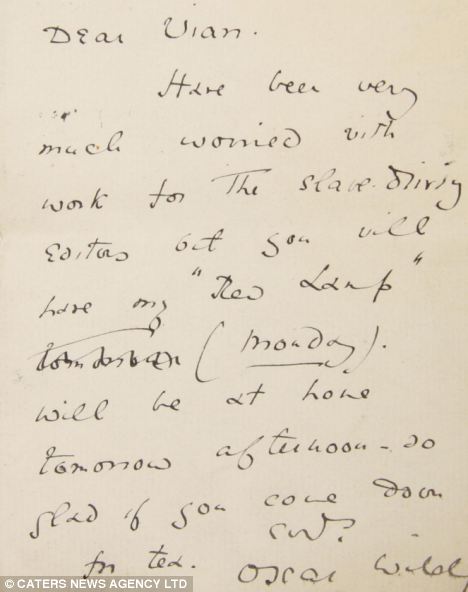 Dear Vian.
Have been very
much worried with
work for The slave-driving
Editors but you will
have my "Red Lamp"
(Monday).
will be at home
tomorrow afternoon - so
glad if you come down
for tea. Oscar Wilde
© CATERS NEWS AGENCY LTD